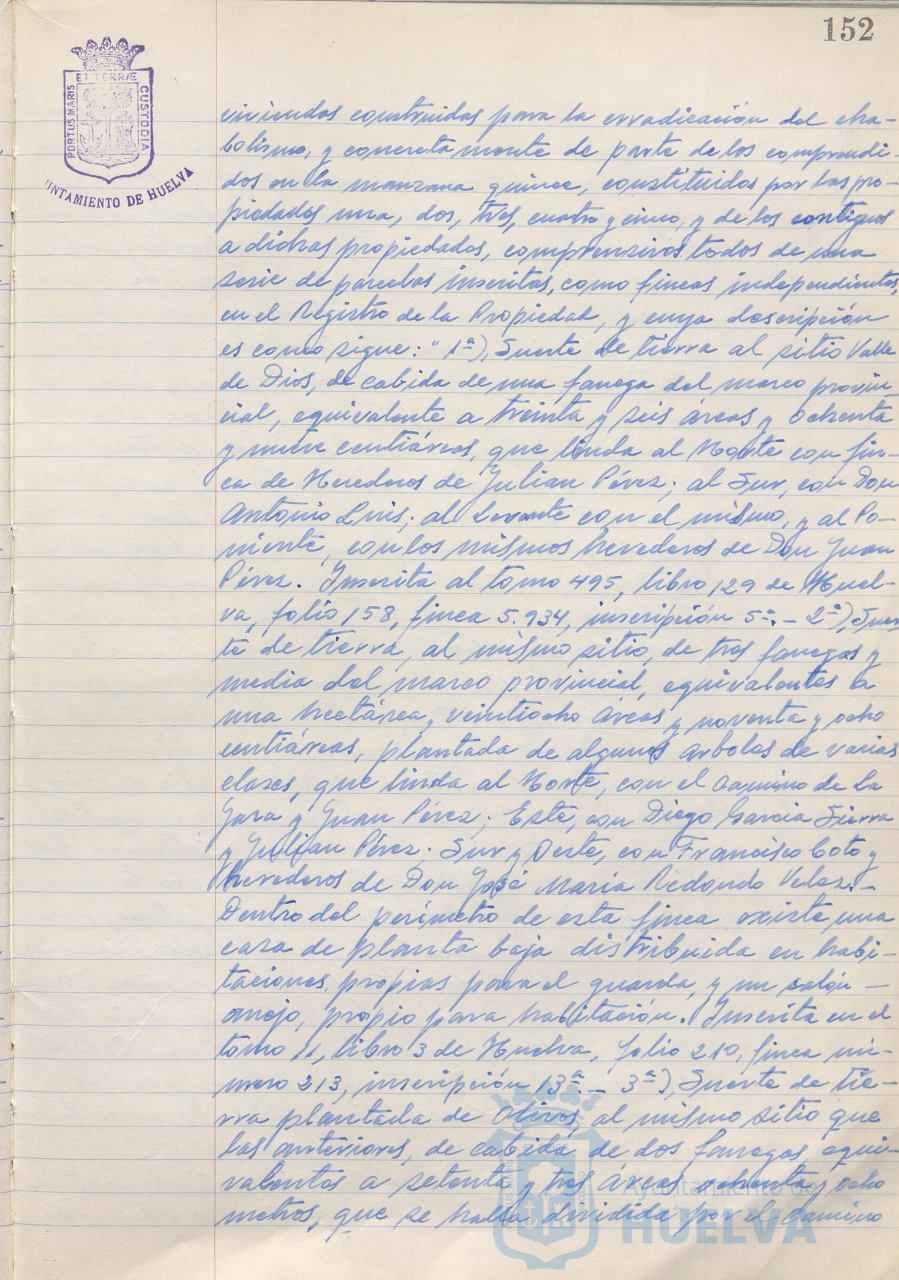 152
ET TERRÆ
PORTUS MARIS
CUSTODIA
UNTAMIENTO DE HUELVA
viviendas construidas para la erradicación del cha-
bolismo, y concretamente de parte de los comprendi-
dos en la manzana quince, constituidos por las pro-
piedades una, dos, tres, cuatro y cinco, y de los contiguos
a dichas propiedades, comprensivos todos de una
serie de parcelas inscritas, como fincas independientes,
en el Registro de la Propiedad, y cuya descripción
es como sigue: "1ª), Suerte de tierra al sitio Valle
de Dios, de cabida de una fanega del marco provin-
cial, equivalente a treinta y seis áreas y ochenta
y nueve centiáreas, que linda al Norte con fin-
ca de Herederos de Julian Pérez; al Sur, con Don
Antonio Luis; al Levante con el mismo, y al Po-
niente, con los mismos herederos de Don Juan
Pérez. Inscrita al tomo 495, libro 129 de Huel-
va, folio 158, finca 5.934, inscripción 5ª.- 2ª), Suer
te de tierra, al mismo sitio, de tres fanegas y
media del marco provincial, equivalentes a
una hectárea, veintiocho áreas y noventa y ocho
centiáreas, plantada de algunos arboles de varias
clases, que linda al Norte, con el camino de la
Jara y Juan Pérez; Este, con Diego Garcia Sierra
y Julian Pérez; Sur y Oeste, con Francisco Coto y
herederos de Don José María Redondo Velez.-
Dentro del perímetro de esta finca existe una
casa de planta baja distribuida en habi-
taciones propias para el guarda, y un salón -
anejo, propio para habitación. Inscrita en el
tomo 11, libro 3 de Huelva, folio 210, finca nú-
mero 213, inscripción 13ª.- 3ª), Suerte de tie-
rra plantada de Olivos, al mismo sitio que
las anteriores, de cabida de dos fanegas, equi-
valentes a setenta y tres áreas ochenta y ocho
metros, que se halla dividida por el camino
Ayuntamiento de
HUELVA